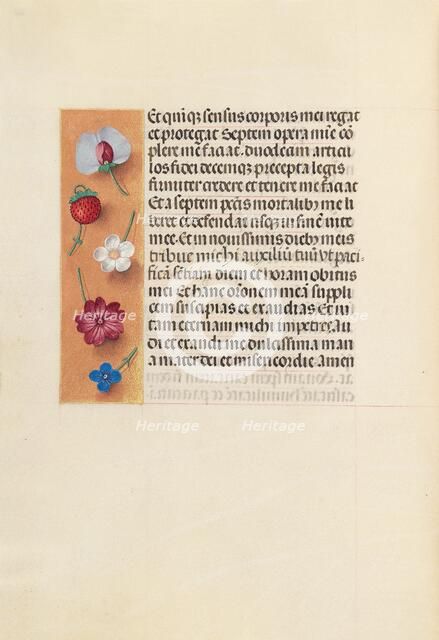 Et quinqz sensus corporis mei regat
et protegat Septem opera mie cō
plere me faciat. duodecim articu
los fidei decemqz precepta legis
firmiter credere et tenere me faciat
Et a septem pctis mortalibz me li
beret et defendat usqz in finē inte
mee. Et in nouissimis diebz meis
tribue michi auxiliū tuū vt paci-
ficā sētiam diem et horam obitus
mei Et hanc orōnem meā suppli
cem suscipias et exaudias. Et ui
tam eternam michi impetres. Au
di et exaudi me dulcissima mari
a mater dei et misericordie amen
Heritage
Heritage
Heritage
Heritage
Heritage
Heritage